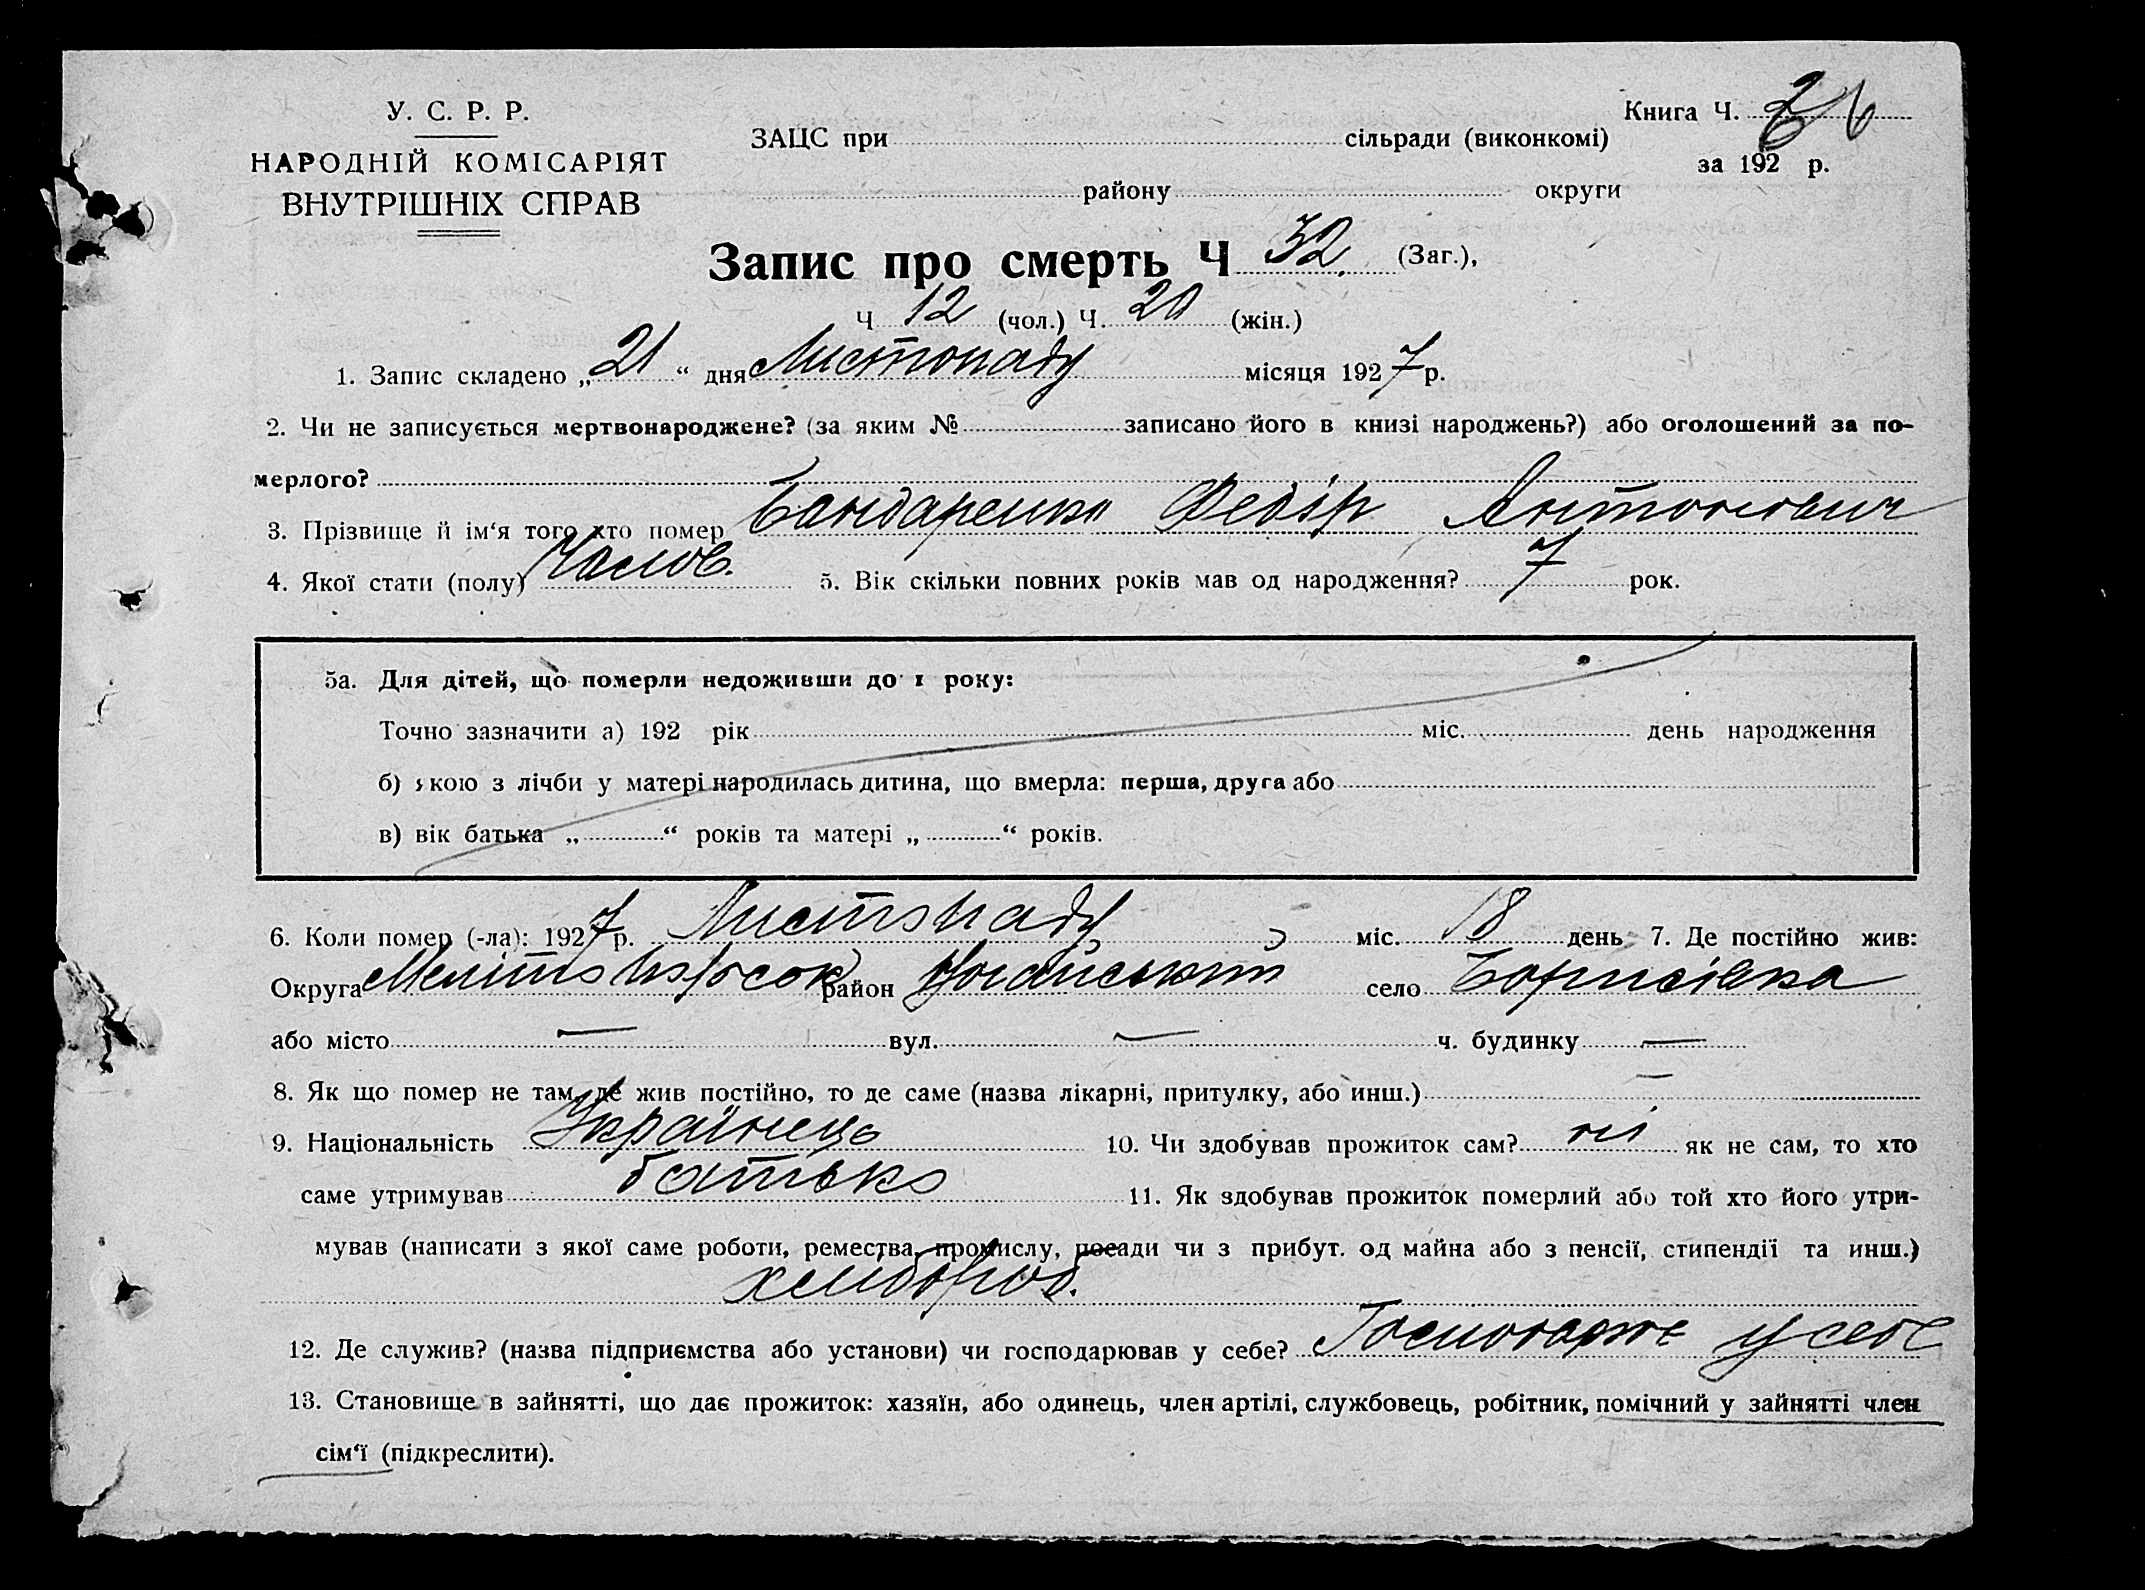 У. С. Р. Р.
НАРОДНІЙ КОМІСАРІЯТ
ВНУТРІШНІХ СПРАВ
ЗАЦС при сільради (виконкомі)
району округи
Книга Ч.
за 192 р.
Запис про смерть Ч 32 (Заг.),
Ч 12 (чол.) Ч. 20 (жін.)
1. Запис складено „ 21 “ дня Листопаду місяця 1927 р.
2. Чи не записується мертвонароджене? (за яким № записано його в книзі народжень?) або оголошений за по-
мерлого?
3. Прізвище й ім‘я того хто помер Бандаренко Федір Антонович
4. Якої стати (полу) Чолов. 5. Вік скільки повних років мав од народження? 7 рок.
5а. Для дітей, що померли недоживши до 1 року:
Точно зазначити а) 192 рік міс. день народження
б) якою з лічби у матері народилась дитина, що вмерла: перша, друга або
в) вік батька „ “ років та матері „ “ років.
6. Коли помер (-ла): 1927 р. Листопаду міс. 18 день 7. Де постійно жив:
Округа район Ногайський село Борисівка
або місто — вул. — ч. будинку —
8. Як що помер не там, де жив постійно, то де саме (назва лікарні, притулку, або инш.) —
9. Національність Українець 10. Чи здобував прожиток сам? ні як не сам, то хто
саме утримував батько 11. Як здобував прожиток померлий або той хто його утри-
мував (написати з якої саме роботи, ремества, промислу, посади чи з прибут. од майна або з пенсії, стипендії та инш.)
хлибороб.
12. Де служив? (назва підприємства або установи) чи господарював у себе? у себе
13. Становище в зайнятті, що дає прожиток: хазяїн, або одинець, член артілі, службовець, робітник, помічний у зайнятті член
сім‘ї (підкреслити).